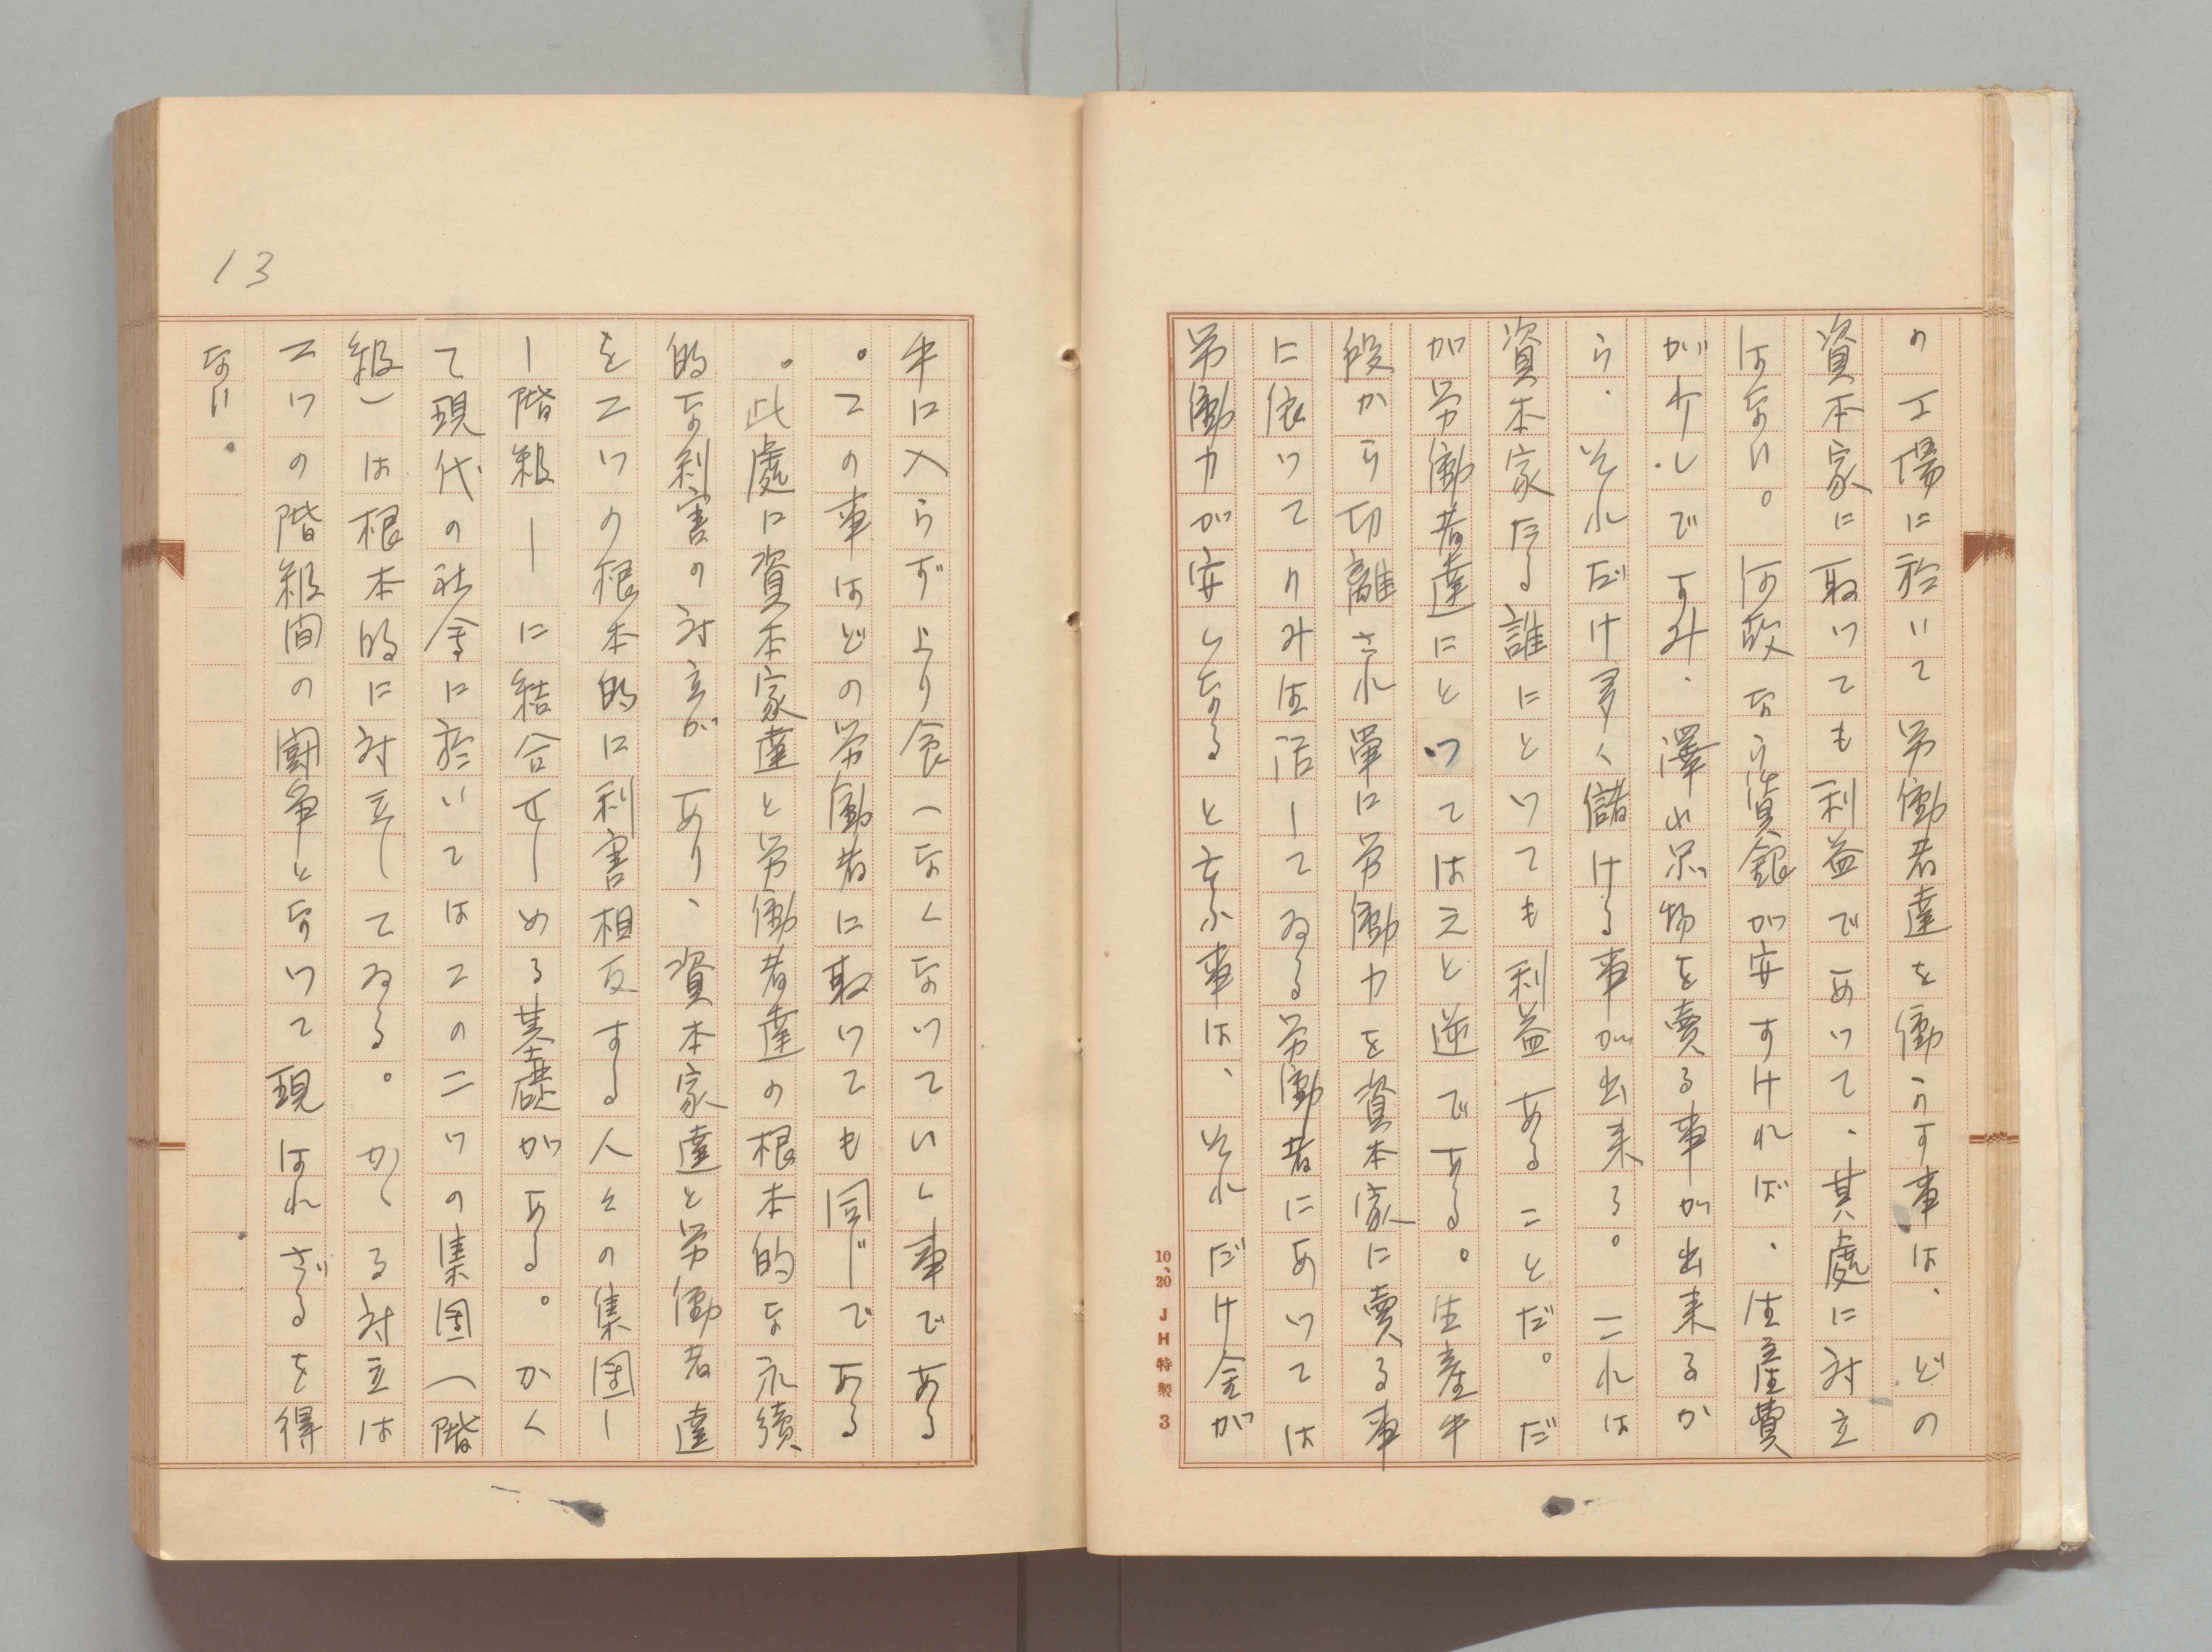 の工場に於いて労働者達を働かす事は、どの
資本家に取つても利益であつて、其處に対立
はない。何故なら賃銀が安すければ、生産費
が少しですみ、澤山品物を賣る事が出来るか
ら、それだけ多く儲ける事が出来る。これは
資本家たる誰にとつても利益あることだ。だ
が労働者達にとつては之と逆である。生産手
段から切離され單に労働力を資本家に賣る事
に依つてのみ生活してゐる労働者にあつては
労働力が安くなると云ふ事は、それだけ金が
10、20 JH特製 3
手に入らずより食へなくなつていく事である
。この事はどの労働者に取つても同じである
。此處に資本家達と労働者達の根本的な永續
的な利害の対立があり、資本家達と労働者達
を二つの根本的に利害相反する人々の集団ー
ー階級ーに結合せしめる基礎がある。かく
て現代の社会に於いてはこの二つの集団（階
級）は根本的に対立してゐる。かゝる対立は
二つの階級間の闘争となつて現はれざるを得
ない。
13